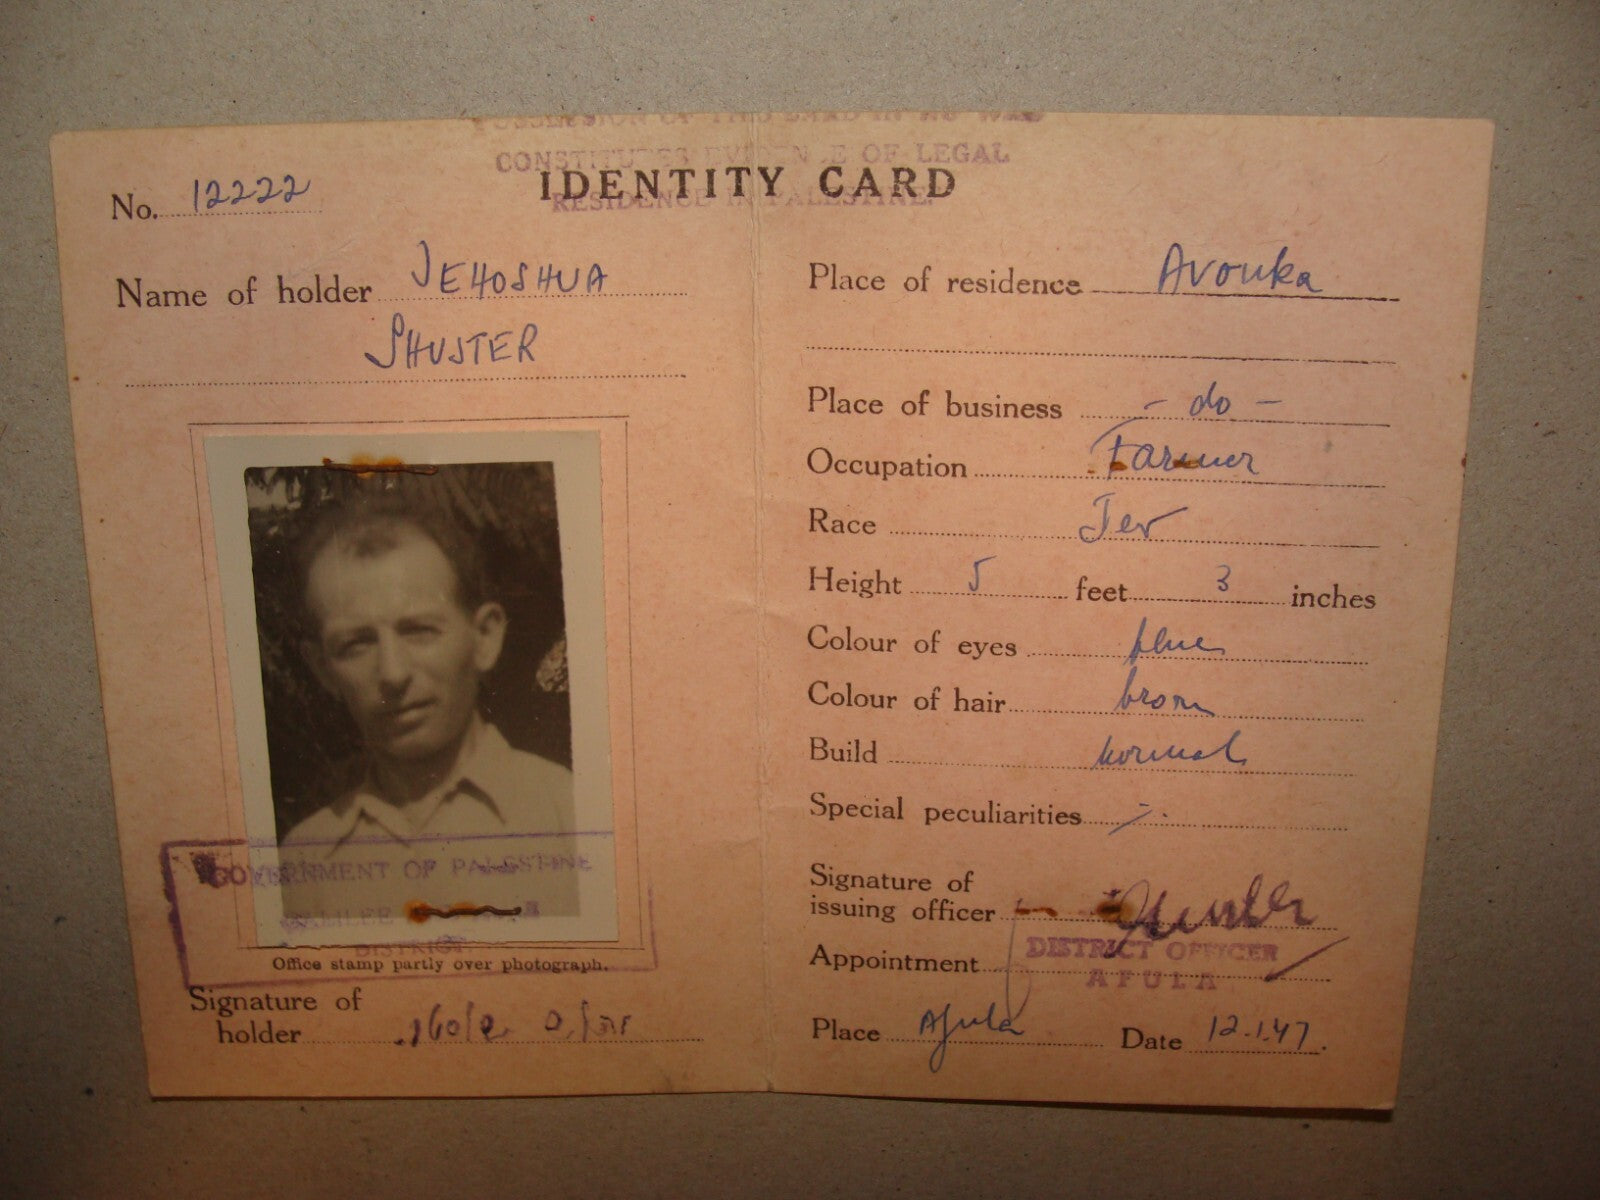 POSSESSION OF THIS CARD IN NO WAY
CONSTITUTES EVIDENCE OF LEGAL
RESIDENCE IN PALESTINE.
IDENTITY CARD
No. 12222
Name of holder JEHOSHUA
SHUSTER
GOVERNMENT OF PALESTINE
GALILEE
DISTRICT
Office stamp partly over photograph.
Signature of
holder
Place of residence Avouka
Place of business - do -
Occupation Farmer
Race Jew
Height 5 feet 3 inches
Colour of eyes blue
Colour of hair brown
Build normal
Special peculiarities
Signature of
issuing officer
Appointment DISTRICT OFFICER
AFULA
Place Afula Date 12.1.47.